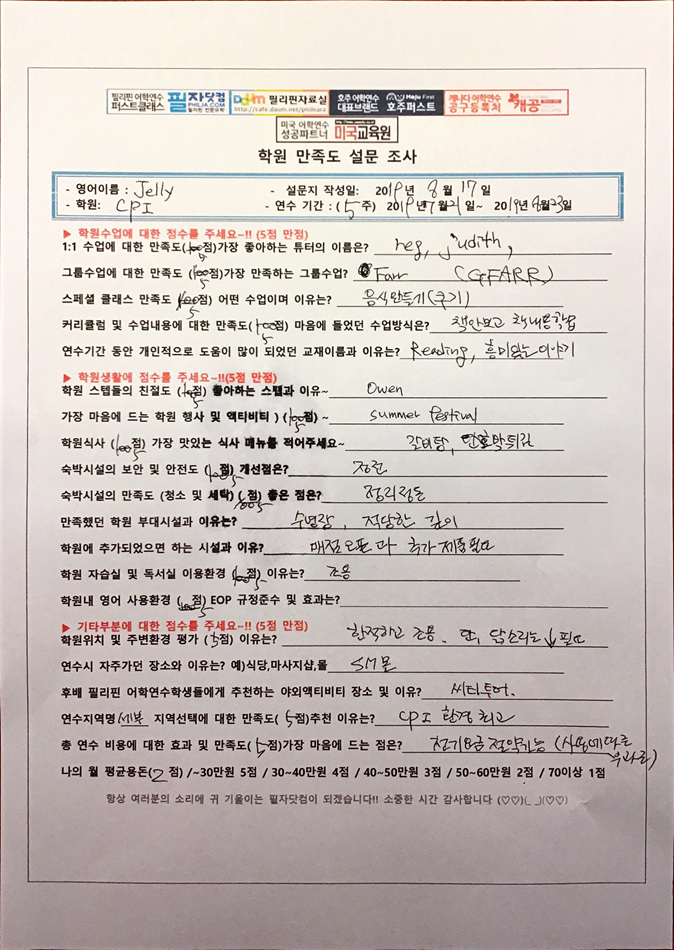 필리핀 어학연수 퍼스트클래스 필자닷컴 PHILJA.COM 필리핀 전문유학 Daum 필리핀자료실 http://cafe.daum.net/philnara 호주 어학연수 대표브랜드 Hoju First 호주퍼스트 캐나다 어학연수 공구등록처 캐공
미국 어학연수 성공파트너 미국교육원
학원 만족도 설문 조사
- 영어이름 : Jelly - 설문지 작성일: 2019년 8월 17일
- 학원: CPI - 연수 기간 : (5주) 2019년 7월 21일~ 2019년 8월 23일
▶ 학원수업에 대한 점수를 주세요~!! (5점 만점)
1:1 수업에 대한 만족도(5점)가장 좋아하는 튜터의 이름은? judith,
그룹수업에 대한 만족도 (5점)가장 만족하는 그룹수업? Farr (GFARR)
스페셜 클래스 만족도 (5점) 어떤 수업이며 이유는? 음식만들기(쿠키)
커리큘럼 및 수업내용에 대한 만족도(5점) 마음에 들었던 수업방식은? 책안보고 책내용학습
연수기간 동안 개인적으로 도움이 많이 되었던 교재이름과 이유는? Reading, 흥미있는 이야기
▶ 학원생활에 점수를 주세요~!!(5점 만점)
학원 스텝들의 친절도 (5점) 좋아하는 스텝과 이유~ Owen
가장 마음에 드는 학원 행사 및 액티비티 ) (5점) ~ summer festival
학원식사 (5점) 가장 맛있는 식사 메뉴를 적어주세요~ 갈비탕, 단호박튀김
숙박시설의 보안 및 안전도 (5점) 개선점은? 정전
숙박시설의 만족도 (청소 및 세탁) (5점) 좋은 점은? 정리정돈
만족했던 학원 부대시설과 이유는? 수영장, 적당한 깊이
학원에 추가되었으면 하는 시설과 이유? 매점오픈과 추가 제품필요
학원 자습실 및 독서실 이용환경 (5점) 이유는? 조용
학원내 영어 사용환경 (5점) EOP 규정준수 및 효과는?
▶ 기타부분에 대한 점수를 주세요~!! (5점 만점)
학원위치 및 주변환경 평가 (5점) 이유는? 한적하고 조용. 단, 닭소리는 ↓ 필요
연수시 자주가던 장소와 이유는? 예)식당,마사지샵,몰 SM몰
후배 필리핀 어학연수학생들에게 추천하는 야외액티비티 장소 및 이유? 씨티투어.
연수지역명 세부 지역선택에 대한 만족도( 5점)추천 이유는? CPI 환경 최고
총 연수 비용에 대한 효과 및 만족도( 5점)가장 마음에 드는 점은? 전기요금 절약가능 (사용에따른 부과로)
나의 월 평균용돈(2 점) /~30만원 5점 / 30~40만원 4점 / 40~50만원 3점 / 50~60만원 2점 / 70이상 1점
항상 여러분의 소리에 귀 기울이는 필자닷컴이 되겠습니다!! 소중한 시간 감사합니다 (♡♡)(_ _)(♡♡)